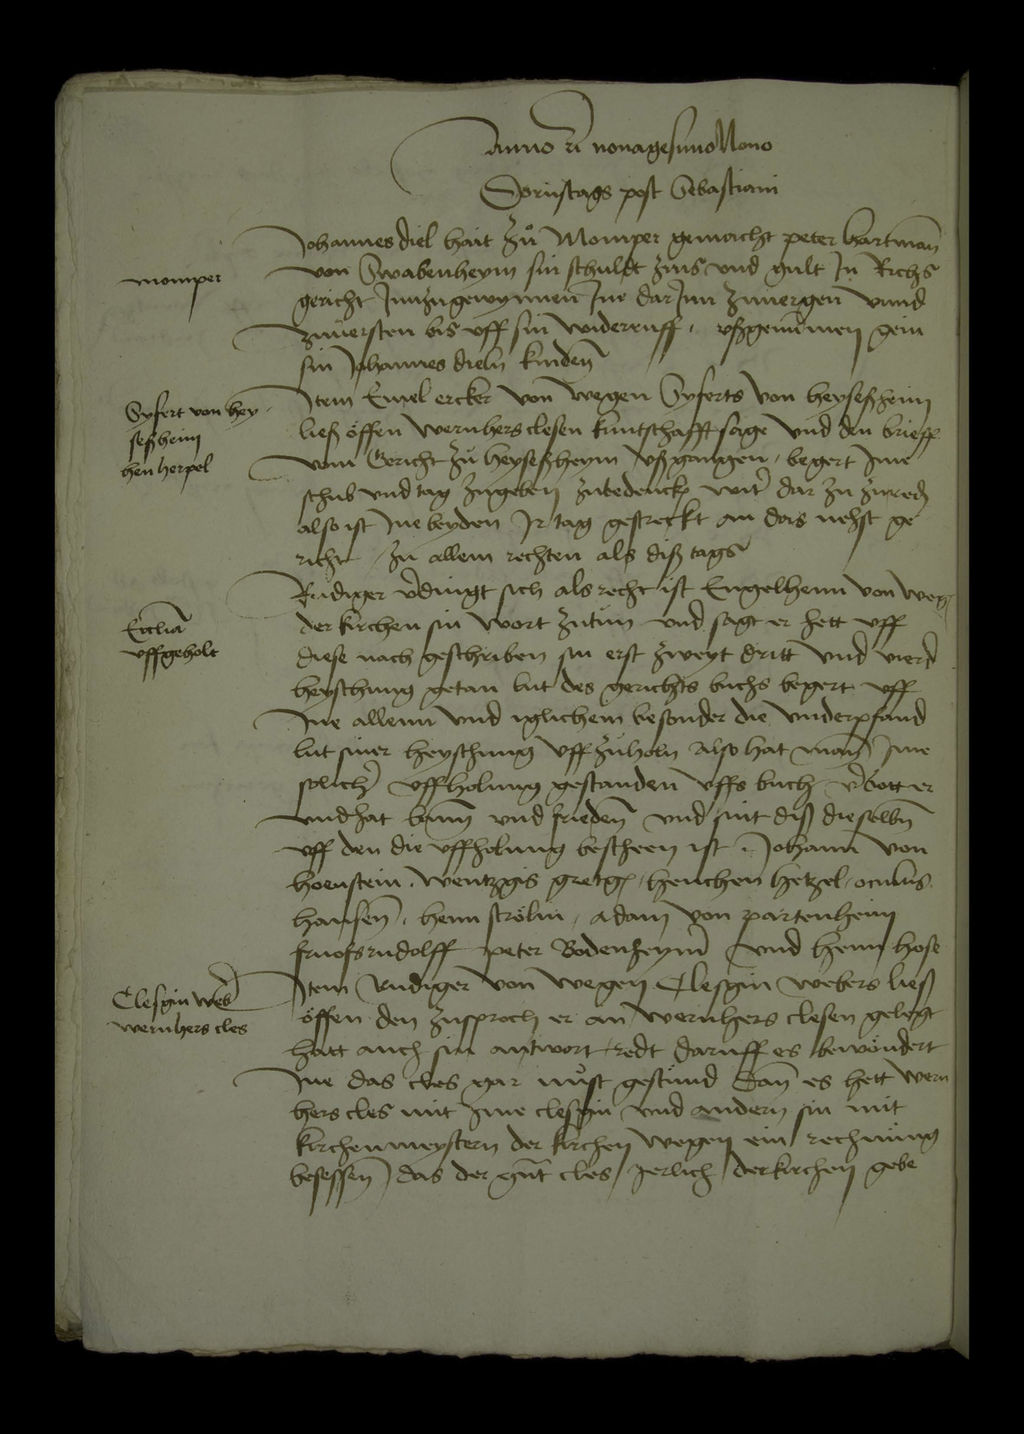 Anno ꝛc nonagesimo Nono
Dornstags post Sebastiani
Johannes diel hait zu Momper gemacht peter hartman
momper
von Swabenheym sin schuldt zins und gult In Richs
gericht Innzugewynnen Ine dar Inn zuuergen vnnd
zuuersten bis vff sin widerruff. vßgenu̅men gein
sin Johannes dieln kinden
Syfert von hey
seßheim
hen herpel
Item Emel ercker von wegen Syferts von heyseßheim
ließ offen wernhers clesen kuntschafft sage vnd den brieff
vom Gericht zu heyseßheym vßgangen, begert Ime
schub vnd tag zugeben zubedencken wit' dar zu zureden
also ist Ine beyden Ir tag gestreckt an das nehst ge
richt zu allem rechten als diß tags
Ecclia
vffgeholt
Rudiger v'dingt sich als recht ist Engelhenn von wegen
der kirchen sin wort zutun vnd sagt er hett vff
diese nach geschriben sin erst zweyt dritt vnd vierd
heyschung getan lut des gerichts buchs begert vff
Ine allenn vnd iglichem besonder die vnderpfand
lut siner heyschung vff zu holn also hat man Ime
solich' vffholung gestanden vffs buch v'bott er
vnd hat bann vnd frieden vnd sint diß dieselbn
vff den die vffholung bescheen ist. Johann von
hoenstein. wentzgis gretg, henchen hetzel, oculus
hansen, henn strolin, Adam von partenheim
rudolff peter Bodenheym vnd henn hose
Clesgin web'
wernhers cles
Item Rudiger von wegen Clesgin webers ließ
offen den zusproch er an wernhers clesen gelegt
hatt auch sin antwort, redt daruff es bewondert
Ine das cles gar nust gestund dan es hett wern
hers cles mit Ime clesgin vnd andern sin mit
kirchenmeystern der kirchen wegen ein rechnung
besessen das der gut cles Jerlich der kirchen gebe